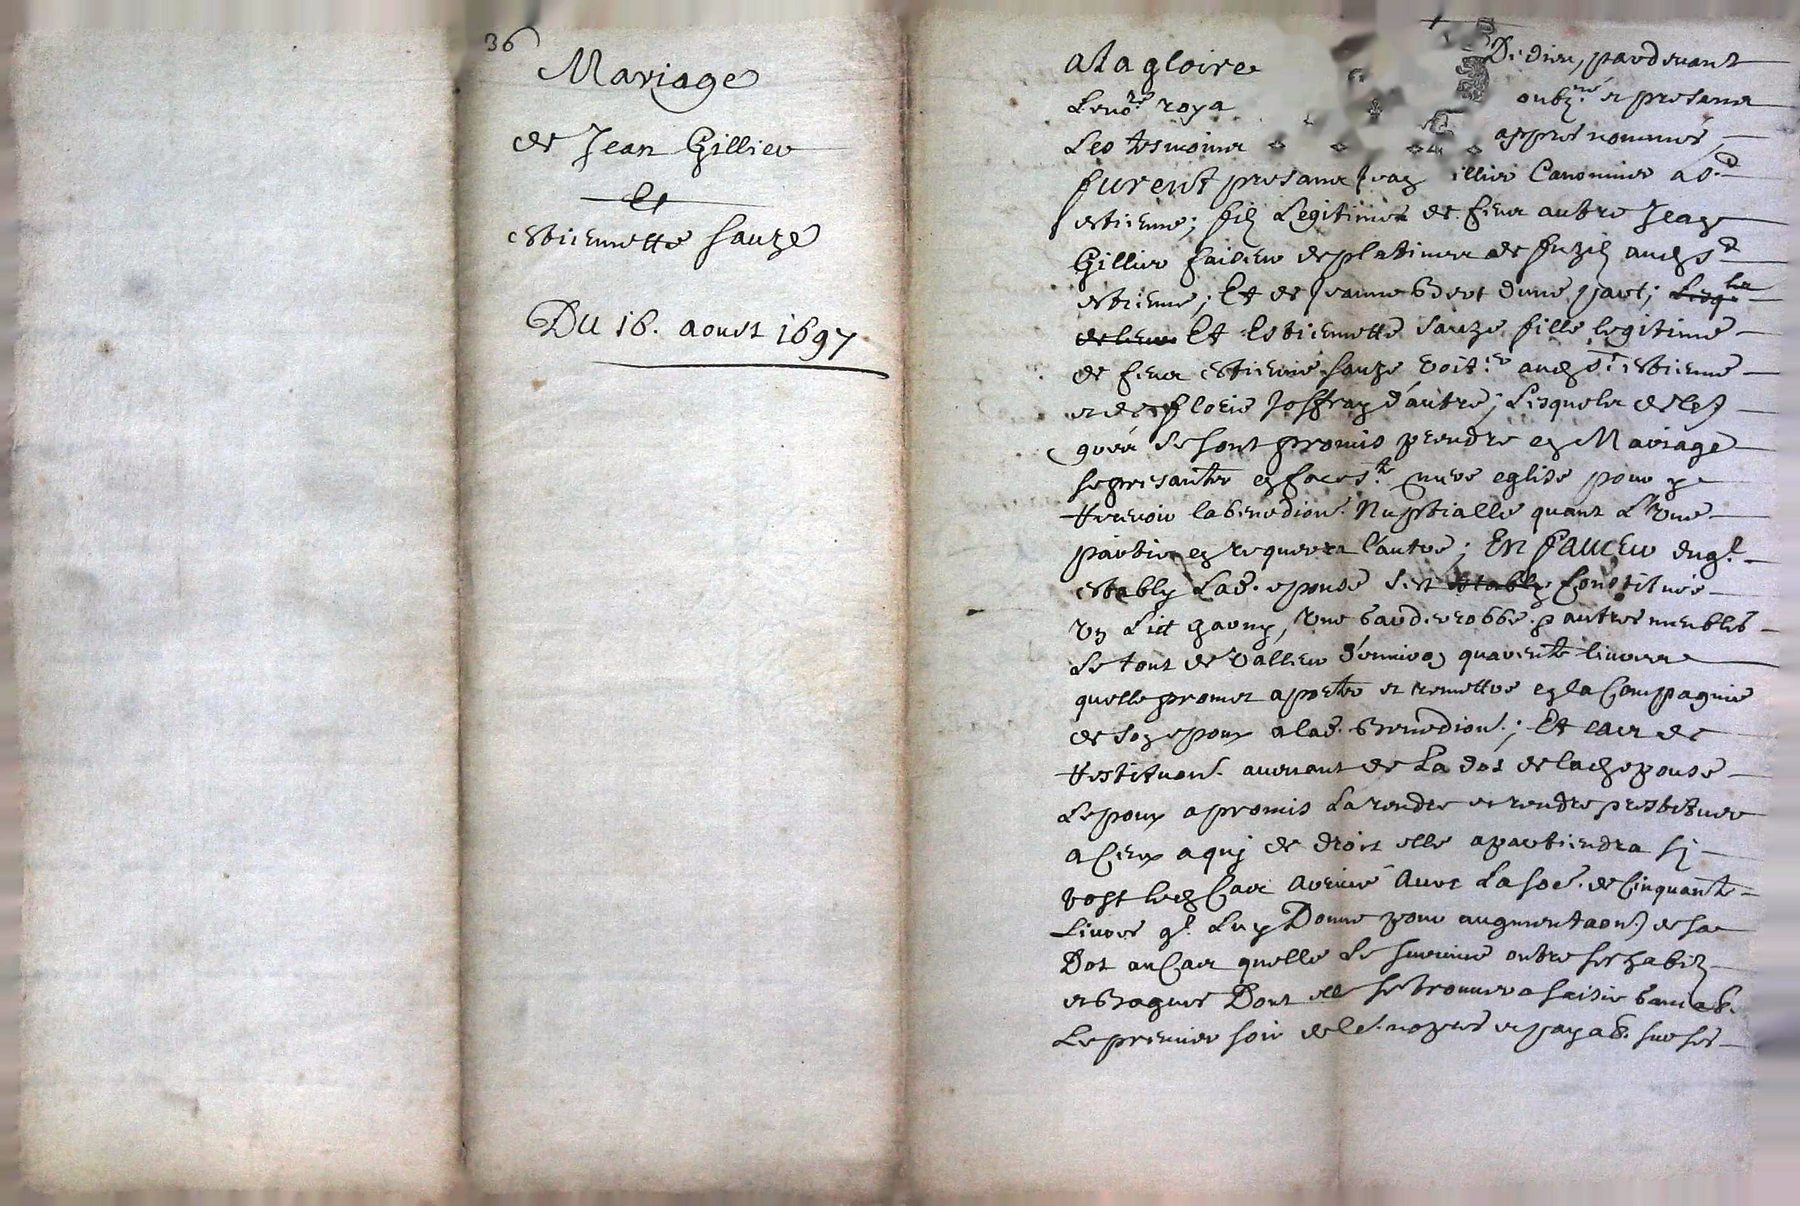 36
Mariage
de Jean Gillier
Et
estiennette sauze
Du 16. aoust 1697
a la gloire De dieu, pardevant
Le no.re roya et presants
Les tesmoins appres nommés,
furent presans Jean illier Canonnier a S.t
estienne; fils Legitime de feu autre Jean
Gillier faiseur de platines de fuzil aud S.t
estienne; Et de Jeanne d'une part;
Et Estiennette sauze fille legitime
de feu estienne sauze voit.er aud S.t estienne
et de florie Joffray d'autre; Lisquels de leur
gré se sont promis prendre en Mariage
se presanter en face s.te mere eglise pour y
recevoir la benedion. Nuptialle quant L'une
partie en requerra l'autre; En faveur duq.l
estably Lad. epouse s'est Constituée
un Lict garny, une garderobbe et autres meubles
Le tout de valleur d'environ quarente livres
quelle promet aporter et remettre en la Compagnie
de son epoux a lad. Benedion.; Et cas de
restituon. avenant de La dot de lad epouse
L'epoux a promis La rendre et restituer
a Ceux a quy de droit elle apartiendra sy
tost led Cas avenir avec La so.e de Cinquante
Livres q.l Luy Donne pour augmentaon. de sa
Dot au Cas quelle Le survive outre ses habits
et Bagues Dont elle se trouvera saisie
Le premier soir de le. nopces et payab. sur ses